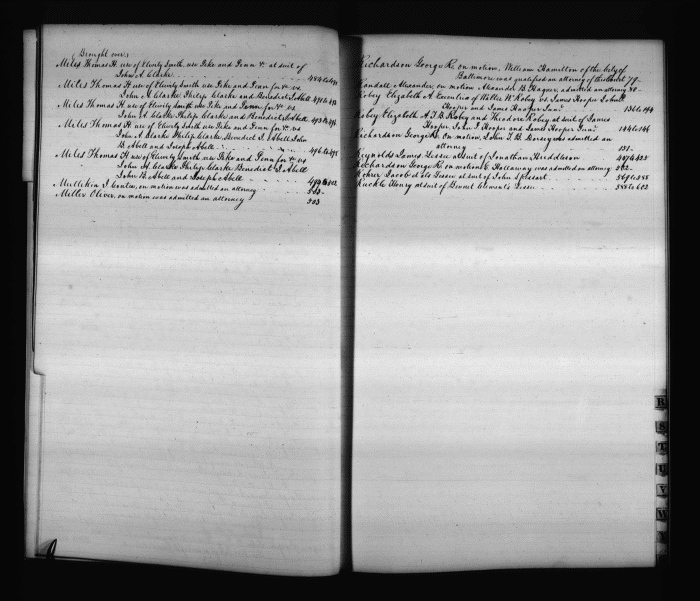 (Brought over)
Miles Thomas H. use of Clevity Smith, use Pike and Penn &c. at suit of
John A. Clarke
Miles Thomas H. use of Clevity Smith use Pike and Penn for &c. vs
John A Clarke Philip Clarke and Benedict I. Abell
Miles Thomas H. use of Clevity Smith use Pike and Penn for &c. vs
John A. Clarke Philip Clarke and Benedict I Abell 493 to 496
Miles Thomas H use of Clevity Smith use Pike and Penn for &c. vs
John A Clarke Philip Clarke, Benedict I Abell John
B Abell and Joseph Abell 496 to 498
Miles Thomas H use of Clevity Smith use Pike and Penn for &c vs
John H. Clarke Philip Clarke Benedict I Abell
John B. Abell and Joseph Abell
Mullikin I Contee, on motion was admitted an attorney 503
Miller Oliver, on motion was admitted an attorney
503
Richardson George R. on motion, William Hamilton of the City of
Baltimore was qualified an attorney of this court 79
Randall Alexander, on motion Alexander B Hagner, admitted an attorney 80
Robey Elizabeth A Executrix of Walter W Robey vs James Hooper John
Hooper and James Hooper Junr 136 to 144
Robey Elizabeth A T. B. Robey and Theodore Robey at suit of James
Hooper John I Hooper and James Hooper Junr 144 to 146
Richardson George R. On motion, John T. B. Dorsey was admitted an
attorney 151
Reynolds James, Lessee at suit of Jonathan Huddleson 407 to 425
Richardson George R. on motion Hallaway was admitted an attorney 502
Rohrer Jacob et als Lessee at suit of John Spessart 569 to 588
Ruckle Henry at suit of Bennet Clements Lessee 588 to 603
R
S
T
U
V
W